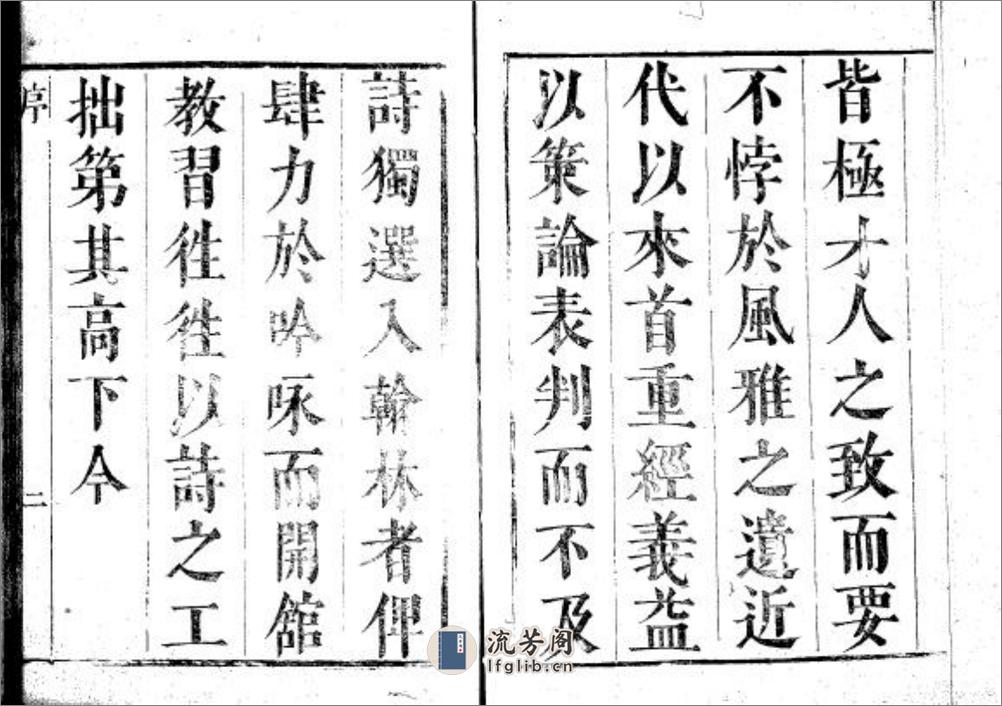 皆極才人之致而要
不悖於風雅之遺近
代以來首重經義益
以策論表判而不及
詩獨選入翰林者俾
肆力於吟咏而開館
教習徃徃以詩之工
拙第其高下今
序
二
流芳阁
lfglib.cn